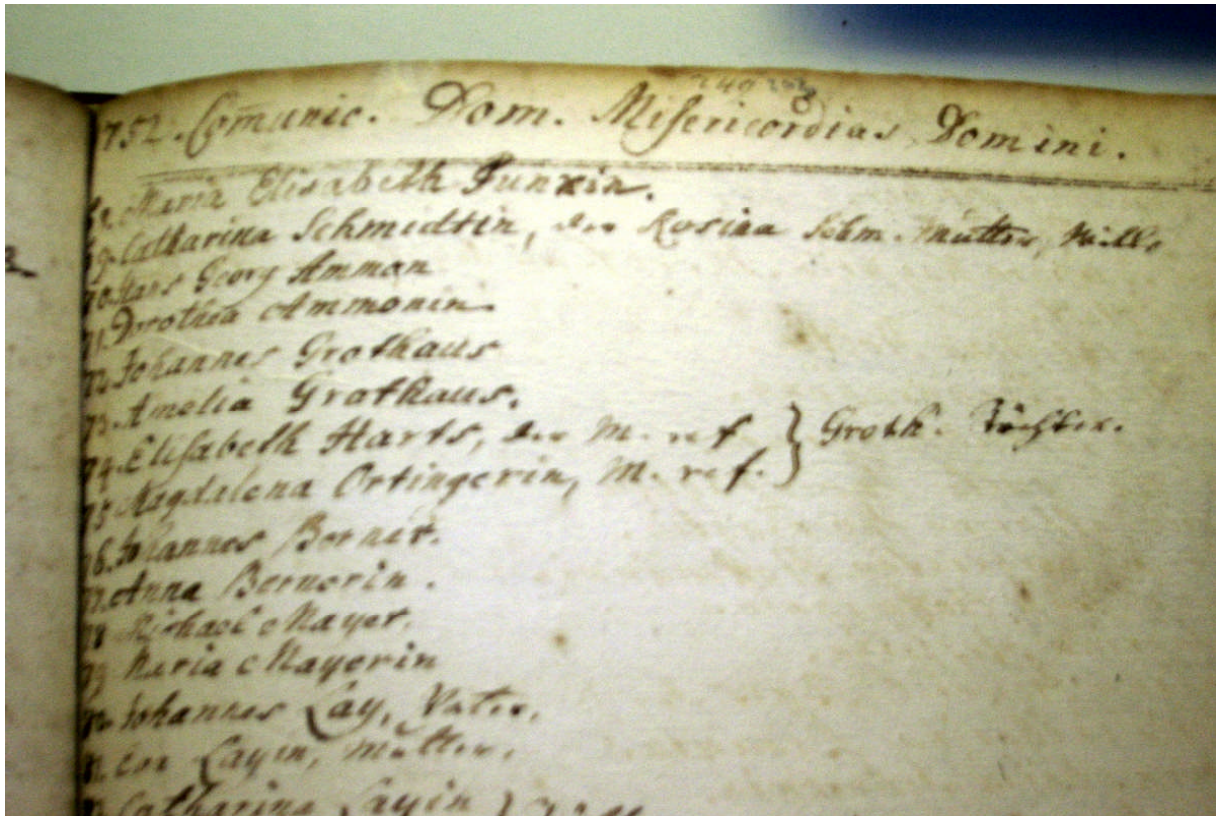 1752. Com̄unic. Dom. Misericordias Domini.
Maria Elisabeth Funkin.
69. Catharina Schmidtin, der Rosina Schm. Mutter,
70. Hans Georg Amman
71. Dorothea Ammonin
72. Johannes Grothaus
73. Amelia Grothaus.
74. Elisabeth Harts, der M. ref } Groth. Töchter.
75. Magdalena Ortingerin, M. ref.
76. Johannes Berner.
77. Anna Bernerin.
78 Michael Mayer.
79 Maria Mayerin
Johannes Lay, Vater,
Layin, Mutter,
Catharina Layin }